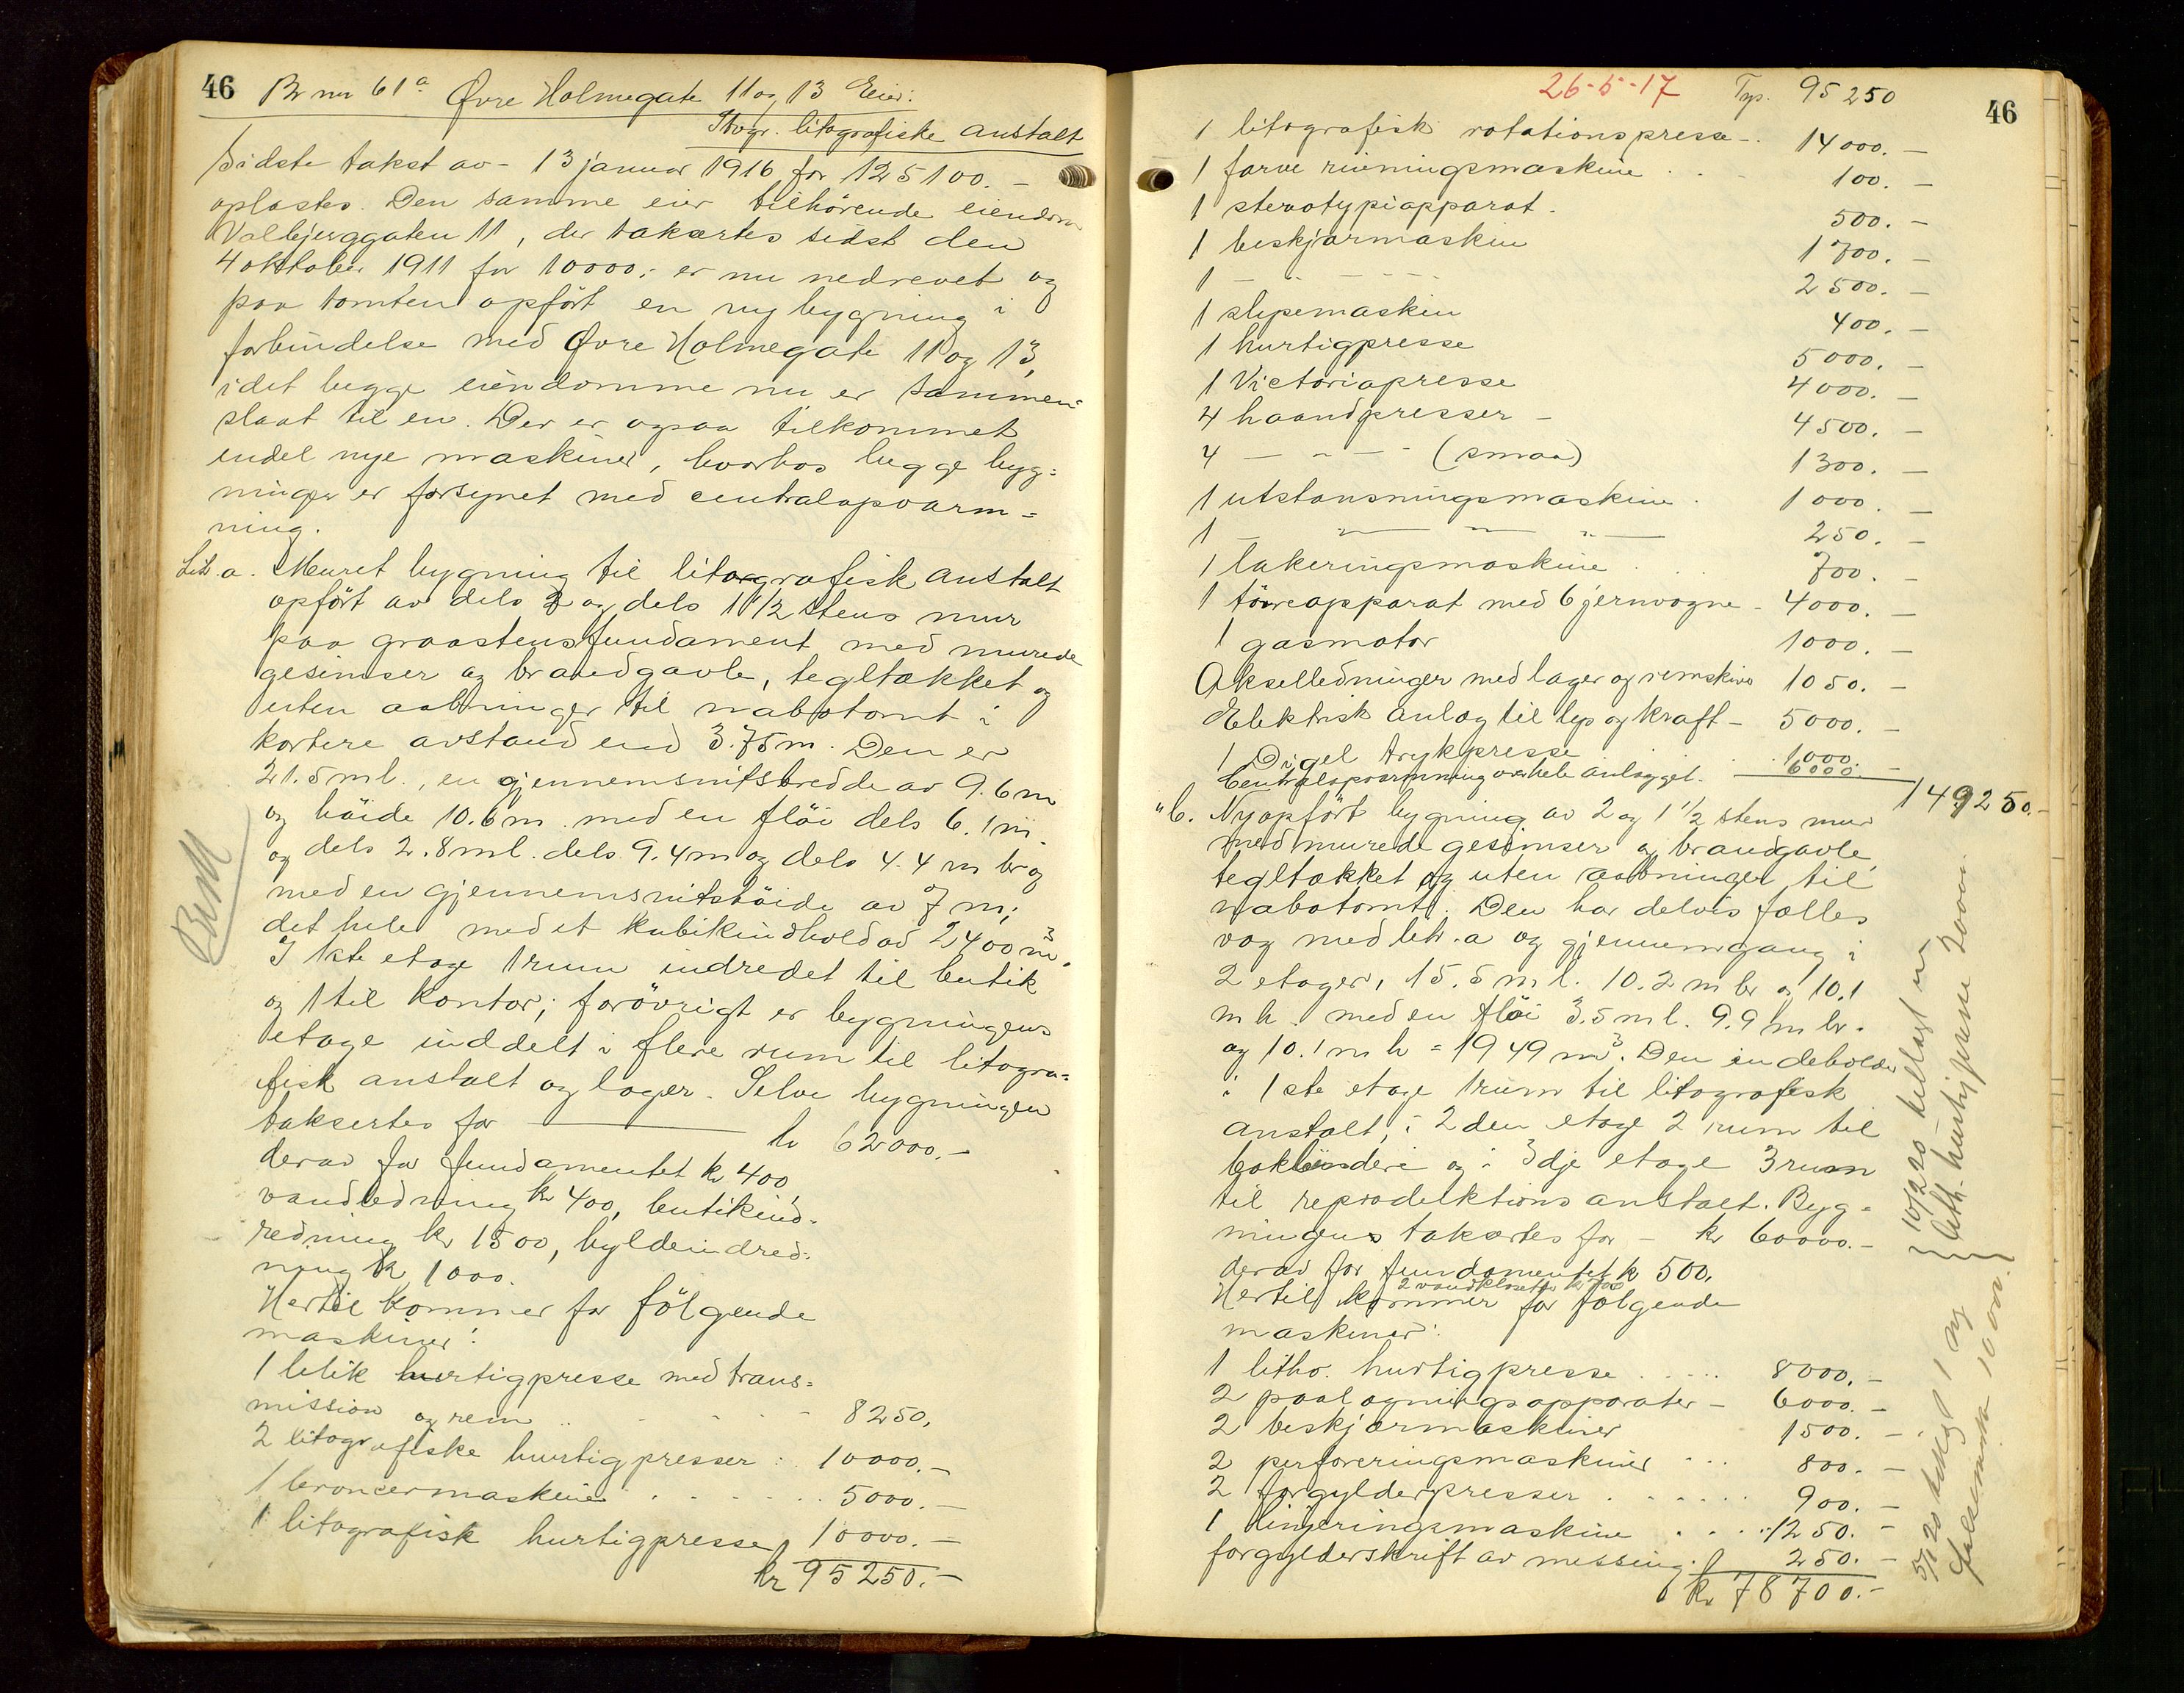 46 Br nr 61a Øvre Holmegate 11 og 13 Eier:
Stvgr. litografiske anstalt
Sidste takst av 13 januar 1916 for 125100.-
oplæstes. Den samme eier tilhörende eiendom
Valbjerggaten 11, der takseres sidst den
4 oktober 1911 for 10000.- er nu nedrevet og
paa tomten opfört en ny bygning i
forbindelse med Øvre Holmegate 11 og 13,
idet begge eiendomme nu er sammen-
slaat til en. Der er ogsaa tilkommet
endel nye maskiner, hvorhos begge byg=
ninger er forsynet med centralopvarm=
ning.
Lit. a. Muret bygning til litografisk anstalt
opfört av dels 2 og dels 1 1/2 stens mur
paa graastensfundament med murede
gesimser og brandgavle, tegltækket og
uten aabninger til nabotomt i
kortere avstand end 3.75 m. Den er
21.5 m l., en gjennemsnitsbredde av 9.6 m
og höide 10.6 m. med en flöi dels 6.1 m
og dels 2.8 m l. dels 9.4 m og dels 4.4 m br og
med en gjennemsnitshöide av 7 m;
det hele med et kubikindhold av 2400 m3.
I 1ste etage 1 rum indredet til butik
og 1 til kontor; forövrigt er bygningens
etage inddelt i flere rum til litogra=
fisk anstalt og lager. Selve bygningen
taksertes for kr 62000.-
derav for fundamentet kr 400,
vandledning kr 400, butikind-
redning kr 1500, hyldeindred-
ning kr 1000.
Hertil kommer for fölgende
maskiner:
1 hurtigpresse med trans=
mission og rem 8250.
2 litografiske hurtigpresser : 10000.-
1 broncermaskine 5000.-
1 litografisk hurtigpresse 10000.-
kr 95250.-
26-5-17 Trp. 95250 46
1 litografisk rotationspresse 14000.-
1 farve rivningsmaskine 100.-
1 stereotypiapparat 500.-
1 beskjærmaskin 1700.-
1 - " - 2500.-
1 slipemaskin 400.-
1 hurtigpresse 5000.-
1 Victoriapresse 4000.-
4 haandpresser - 4500.-
4 - " - (smaa) 1300.-
1 utstansningsmaskine 1000.-
1 - " - 250.-
1 lakeringsmaskine 700.-
1 törreapparat med 6 jernvogne 4000.-
1 gasmotor 1000.-
Akselledninger med lager og remskiver 1050.-
Elektrisk anlæg til lys og kraft - 5000.-
1 Digel trykpresse 1000.-
Centralopvarmning over hele anlægget. 6000.-
149250.-
" b. Nyopfört bygning av 2 og 1 1/2 stens mur
med murede gesimser og brandgavle,
tegltækket og uten aabninger til
nabotomt. Den har delvis fælles
væg med litr. a og gjennemgang i
2 etager, 15.5 m l. 10.2 m br og 10.1
m h. med en flöi 3.5 m l. 9.9 m br.
og 10.1 m h = 1949 m3. Den indeholder
i 1ste etage 1 rum til litografisk
anstalt, i 2den etage 2 rum til
bokbinderi og i 3dje etage 3 rum
til reproduktionsanstalt. Byg=
ningens taksertes for - kr 60000.-
derav for fundamentet kr 500,
2 vandklosetter
Hertil kommer for fölgende
maskiner:
1 litho. hurtigpresse 8000.-
2 paalægningsapparater - 6000.-
2 beskjærmaskiner 1500.-
2 perforeringsmaskiner 800.-
2 forgylderpresser 900.-
1 linjeringsmaskine 1250.-
forgylderskrift av messing. 250.-
kr 78700.-
10/2 20 tillagt ny
lith. hurtigpresse 20000.
5/8 20 tillagt 1 ny
falsemaskin 10000.